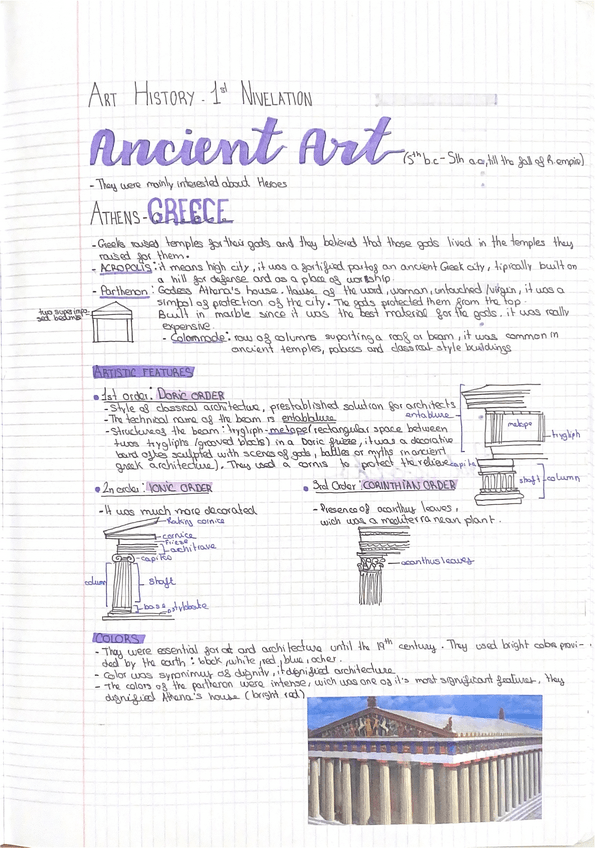 ART HISTORY. 1st NIVELATION
Ancient Art (5th b.c - 5th a.c, till the fall of R. empire)
- They were mainly interested about Heroes
ATHENS - GREECE
- Greeks raised temples for their gods and they believed that those gods lived in the temples they
raised for them.
- ACROPOLIS: it means high city, it was a fortified part of an ancient Greek city, tipically built on
a hill for defense and as a place of worship.
- Parthenon: Godess Athena's house. House of the word, woman, untouched/virgin, it was a
simbol of protection of the city. The gods protected them from the top.
Built in marble since it was the best material for the gods. it was really
expensive.
two superimpo-
sed beams
- Colonnade: row of columns suporting a roof or beam, it was common in
ancient temples, palaces and classical style buildings
ARTISTIC FEATURES
• 1st order: DORIC ORDER
- Style of classical architecture, prestablished solution for architects
- The technical name of the beam is entablature
- Structures the beam: tryglyph-metope (rectangular space between
two tryglyphs (grooved blocks) in a Doric frieze, it was a decorative
band often sculpted with scenes of gods, battles or myths in ancient
greek architecture). They used a cornis to protect the relieve
metope
tryglyph
capite
shaft
column
• 2n order: IONIC ORDER
- It was much more decorated
Raking cornice
cornice
Frieze
architrave
capital
column
shaft
base
stylobate
• 3rd Order: CORINTHIAN ORDER
- Presence of acanthus leaves,
wich was a mediterranean plant.
acanthus leaves
COLORS
- They were essential for art and architecture until the 19th century. They used bright colors provi-
ded by the earth: black, white, red, blue, ocher.
- Color was synonymus of dignity, it dignified architecture
- The colors of the partheron were intense, wich was one of it's most significant features, they
dignified Athena's house (bright red)